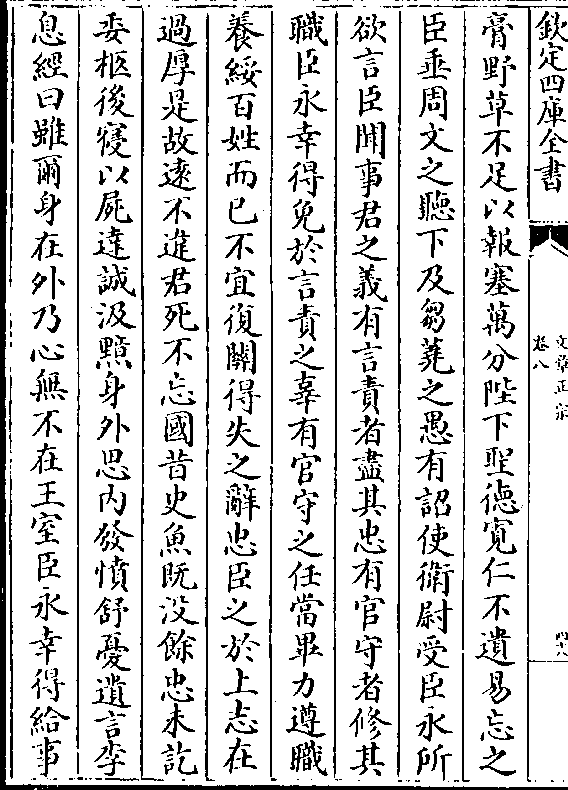 欽定四庫全書
文章正宗
卷八
四十八
膏野草不足以報塞萬分陛下聖德寛仁不遺易忘之
臣垂周文之聽下及芻蕘之愚有詔使衛尉受臣永所
欲言臣聞事君之義有言責者盡其忠有官守者修其
職臣永幸得免於言責之辜有官守之任當畢力遵職
養綏百姓而已不宜復關得失之辭忠臣之於上志在
過厚是故逺不違君死不忘國昔史魚既沒餘忠未訖
委柩後寢以屍達誠汲黯身外思内發憤舒憂遺言李
息經曰雖爾身在外乃心無不在王室臣永幸得給事